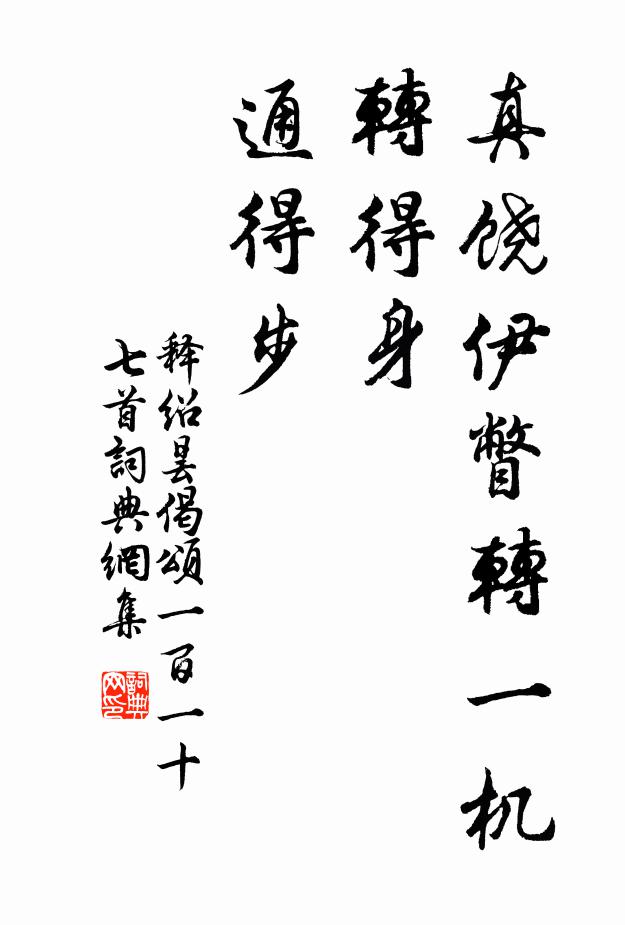 真饶伊瞥轉一机
轉得身
通得步
释绍昙偈頌一百一十
七首詞典網集
詞典网印